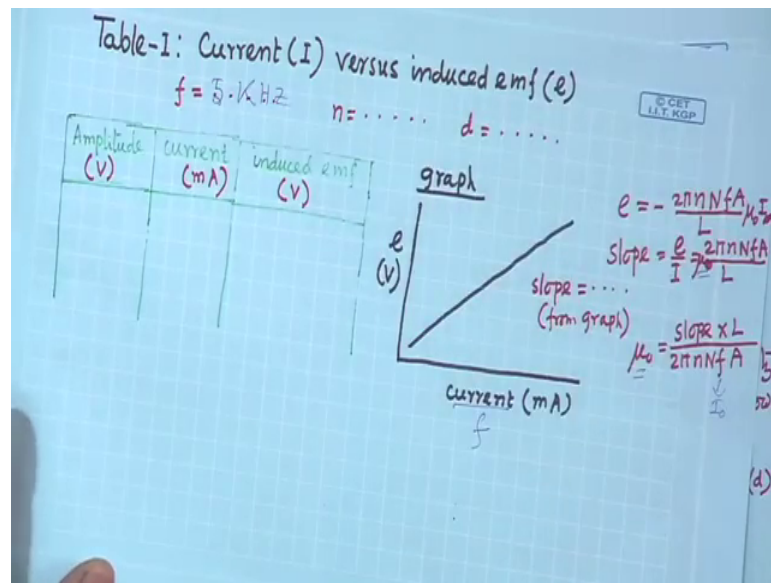 Table-I: Current (I) versus induced emf (e)
f = 5. KHZ
n = ..... d = .....
© CET
I.I.T. KGP
Amplitude (V) current (mA) induced emf (V)
graph
e (V)
current (mA)
f
slope = ....
(from graph)
e = - 2πnNfA/L μ₀I
slope = e/I = μ₀ 2πnNfA/L
μ₀ = slope x L / 2πnNfA
↓
I₀
(d)